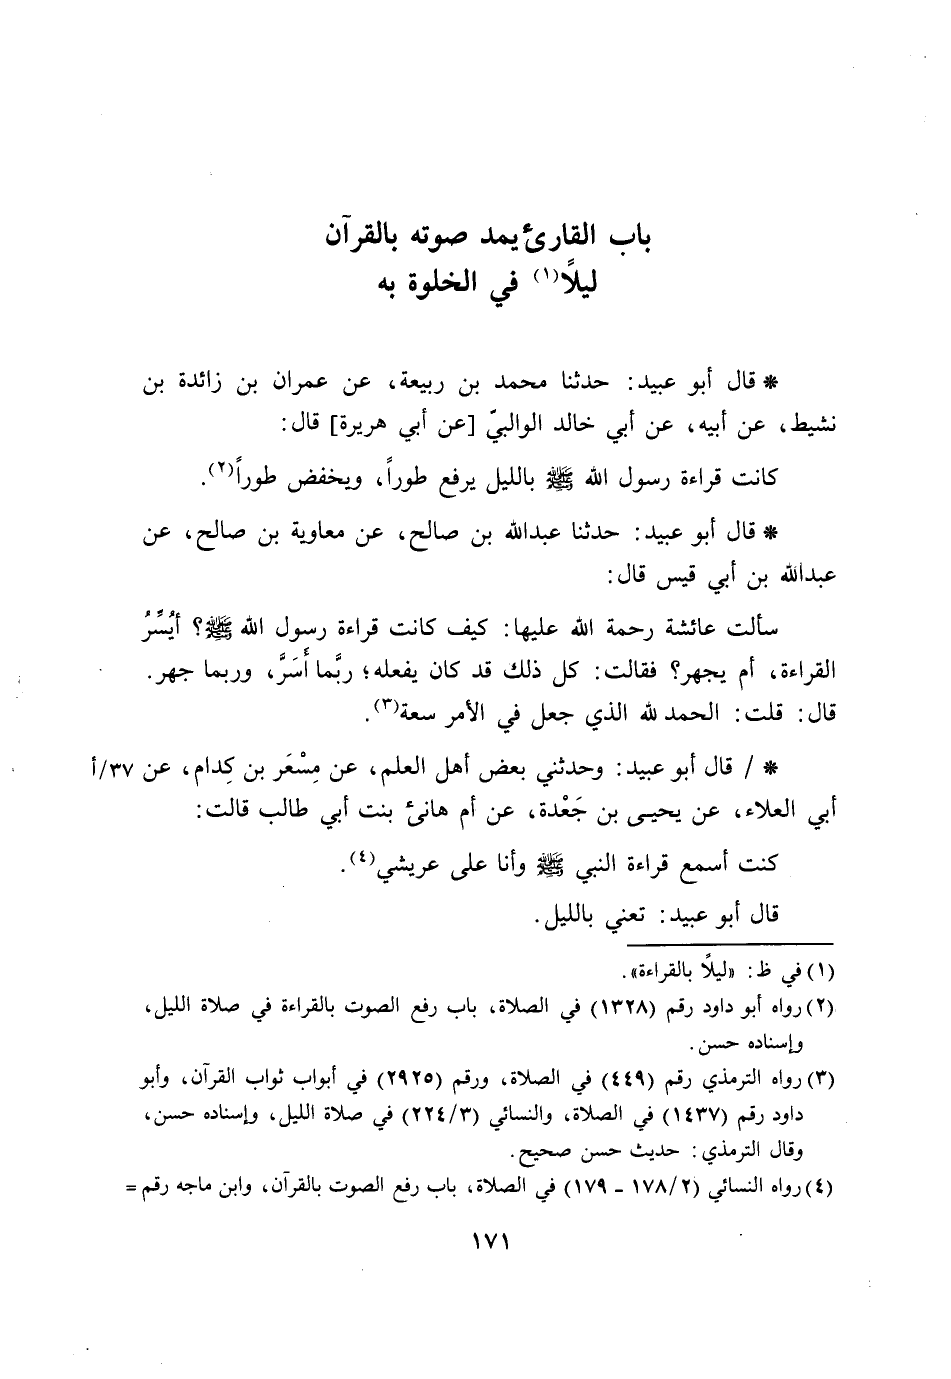 باب القارئ يمد صوته بالقرآن
ليلًا(١) في الخلوة به
* قال أبو عبيد: حدثنا محمد بن ربيعة، عن عمران بن زائدة بن
نشيط، عن أبيه، عن أبي خالد الوالبيّ [عن أبي هريرة] قال:
كانت قراءة رسول الله ﷺ بالليل يرفع طوراً، ويخفض طوراً(٢).
* قال أبو عبيد: حدثنا عبدالله بن صالح، عن معاوية بن صالح، عن
عبدالله بن أبي قيس قال:
سألت عائشة رحمة الله عليها: كيف كانت قراءة رسول الله ﷺ؟ أيُسِّرُ
القراءة، أم يجهر؟ فقالت: كل ذلك قد كان يفعله؛ ربَّما أَسَرَّ، وربما جهر.
قال: قلت: الحمد لله الذي جعل في الأمر سعة(٣).
* / قال أبو عبيد: وحدثني بعض أهل العلم، عن مِسْعَر بن كِدام، عن ٣٧/أ
أبي العلاء، عن يحيى بن جَعْدة، عن أم هانئ بنت أبي طالب قالت:
كنت أسمع قراءة النبي ﷺ وأنا على عريشي(٤).
قال أبو عبيد: تعني بالليل.
(١) في ظ: «ليلًا بالقراءة».
(٢) رواه أبو داود رقم (١٣٢٨) في الصلاة، باب رفع الصوت بالقراءة في صلاة الليل،
وإسناده حسن.
(٣) رواه الترمذي رقم (٤٤٩) في الصلاة، ورقم (٢٩٢٥) في أبواب ثواب القرآن، وأبو
داود رقم (١٤٣٧) في الصلاة، والنسائي (٢٢٤/٣) في صلاة الليل، وإسناده حسن،
وقال الترمذي: حديث حسن صحيح.
(٤) رواه النسائي (١٧٨/٢ - ١٧٩) في الصلاة، باب رفع الصوت بالقرآن، وابن ماجه رقم =
١٧١